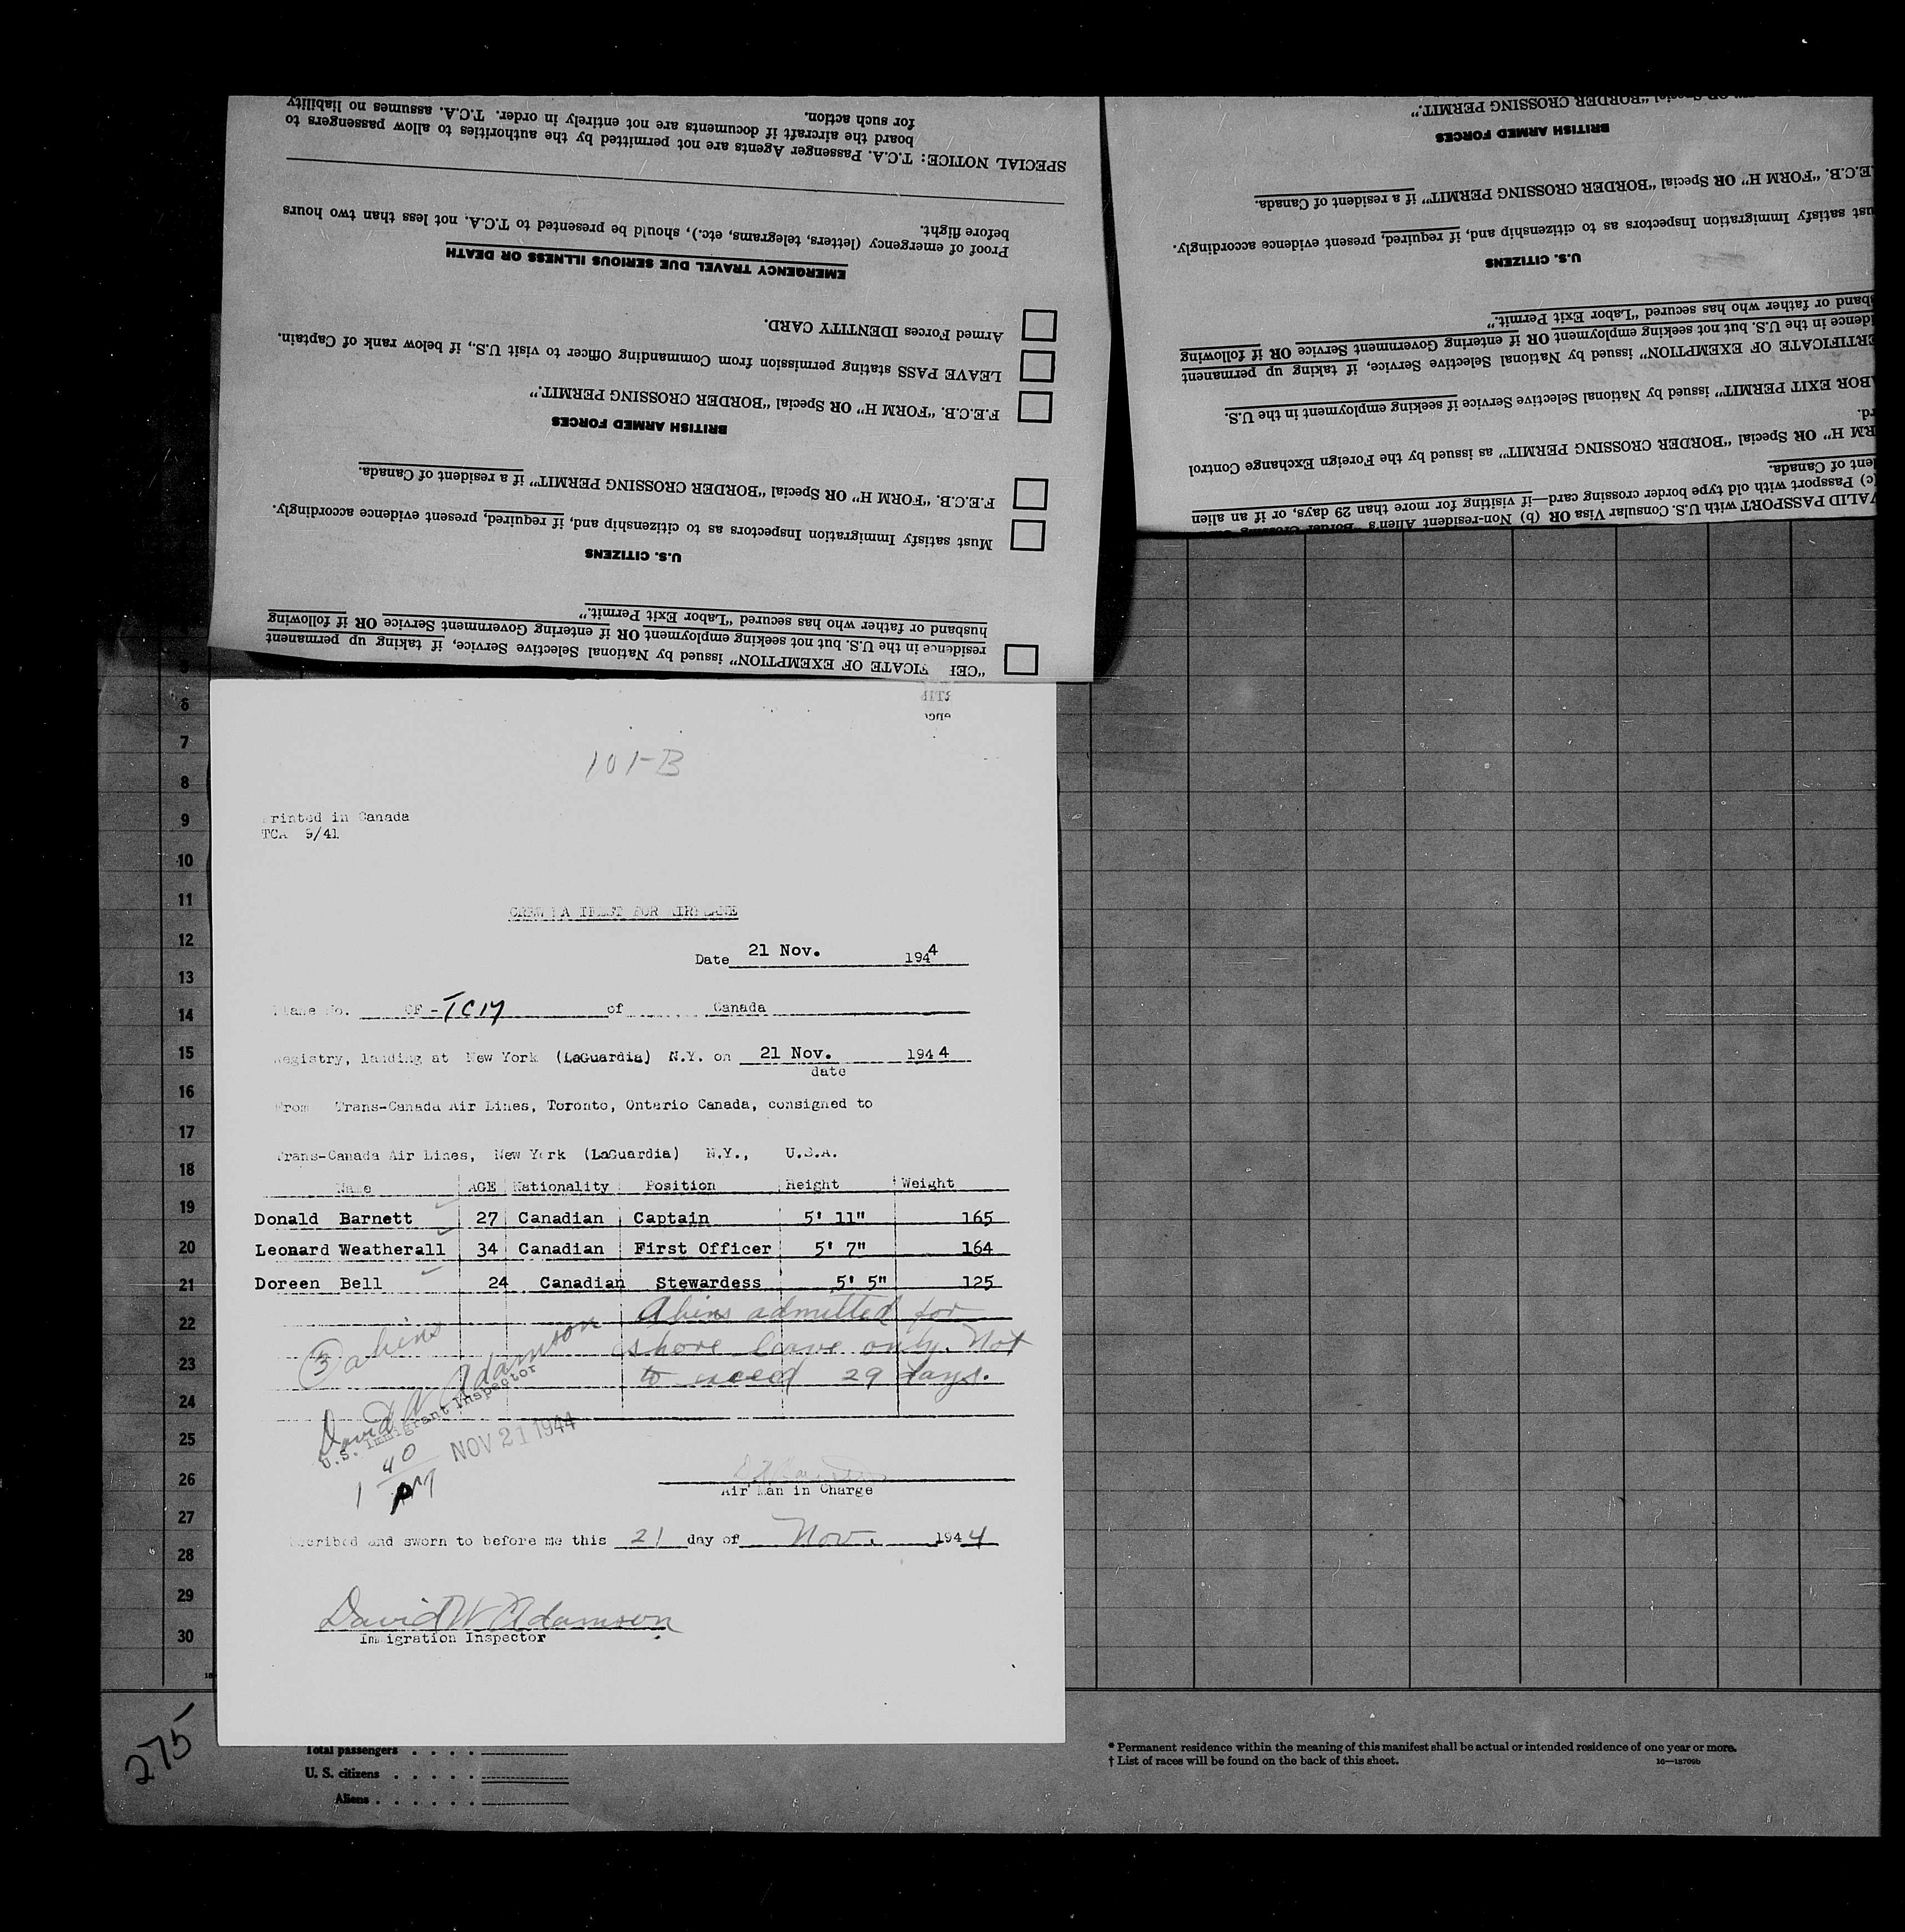 for such action.
board the aircraft if documents are not entirely in order. T.C.A. assumes no liability
SPECIAL NOTICE: T.C.A. Passenger Agents are not permitted by the authorities to allow passengers to
before flight.
Proof of emergency (letters, telegrams, etc.), should be presented to T.C.A. not less than two hours
EMERGENCY TRAVEL DUE SERIOUS ILLNESS OR DEATH
Armed Forces IDENTITY CARD.
LEAVE PASS stating permission from Commanding Officer to visit U.S., if below rank of Captain.
F.E.C.B. "FORM H" OR Special "BORDER CROSSING PERMIT."
BRITISH ARMED FORCES
F.E.C.B. "FORM H" OR Special "BORDER CROSSING PERMIT" if a resident of Canada.
Must satisfy Immigration Inspectors as to citizenship and, if required, present evidence accordingly.
U.S. CITIZENS
husband or father who has secured "Labor Exit Permit."
residence in the U.S. but not seeking employment OR if entering Government Service OR if following
FICATE OF EXEMPTION" issued by National Selective Service, if taking up permanent
Special "BORDER CROSSING PERMIT."
BRITISH ARMED FORCES
E.C.B. "FORM H" OR Special "BORDER CROSSING PERMIT" if a resident of Canada.
ust satisfy Immigration Inspectors as to citizenship and, if required, present evidence accordingly.
U.S. CITIZENS
sband or father who has secured "Labor Exit Permit."
idence in the U.S. but not seeking employment OR if entering Government Service OR if following
ERTIFICATE OF EXEMPTION" issued by National Selective Service, if taking up permanent
ABOR EXIT PERMIT" issued by National Selective Service if seeking employment in the U.S.
rd.
RM H" OR Special "BORDER CROSSING PERMIT" as issued by the Foreign Exchange Control
ent of Canada.
(c) Passport with old type border crossing card—if visiting for more than 29 days, or if an alien
VALID PASSPORT with U.S. Consular Visa OR (b) Non-resident Alien's "Border Crossing
101-B
Printed in Canada
TCA 9/41
CREW MANIFEST FOR AIRPLANE
Date 21 Nov. 1944
Plane No. CF-TCM of Canada
Registry, landing at New York (LaGuardia) N.Y. on 21 Nov. 1944
date
From Trans-Canada Air Lines, Toronto, Ontario Canada, consigned to
Trans-Canada Air Lines, New York (LaGuardia) N.Y., U.S.A.
Name AGE Nationality Position Height Weight
Donald Barnett 27 Canadian Captain 5' 11" 165
Leonard Weatherall 34 Canadian First Officer 5' 7" 164
Doreen Bell 24 Canadian Stewardess 5' 5" 125
Aliens admitted for
shore leave only. Not
to exceed 29 days.
3 aliens
David W Adamson
U.S. Immigrant Inspector
1 40 PM
NOV 21 1944
Air Man in Charge
scribed and sworn to before me this 21 day of Nov. 1944
David W Adamson
Immigration Inspector
6
7
8
9
10
11
12
13
14
15
16
17
18
19
20
21
22
23
24
25
26
27
28
29
30
275
Total passengers
U. S. citizens
Aliens
* Permanent residence within the meaning of this manifest shall be actual or intended residence of one year or more.
† List of races will be found on the back of this sheet.